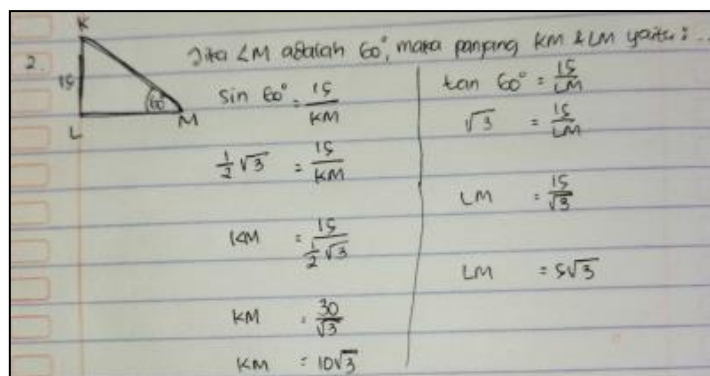 2.
K
15
L
60°
M
Jika ∠M adalah 60°, maka panjang KM & LM yaitu : ...
sin 60° = 15/KM
1/2 √3 = 15/KM
KM = 15/(1/2 √3)
KM = 30/√3
KM = 10√3
tan 60° = 15/LM
√3 = 15/LM
LM = 15/√3
LM = 5√3